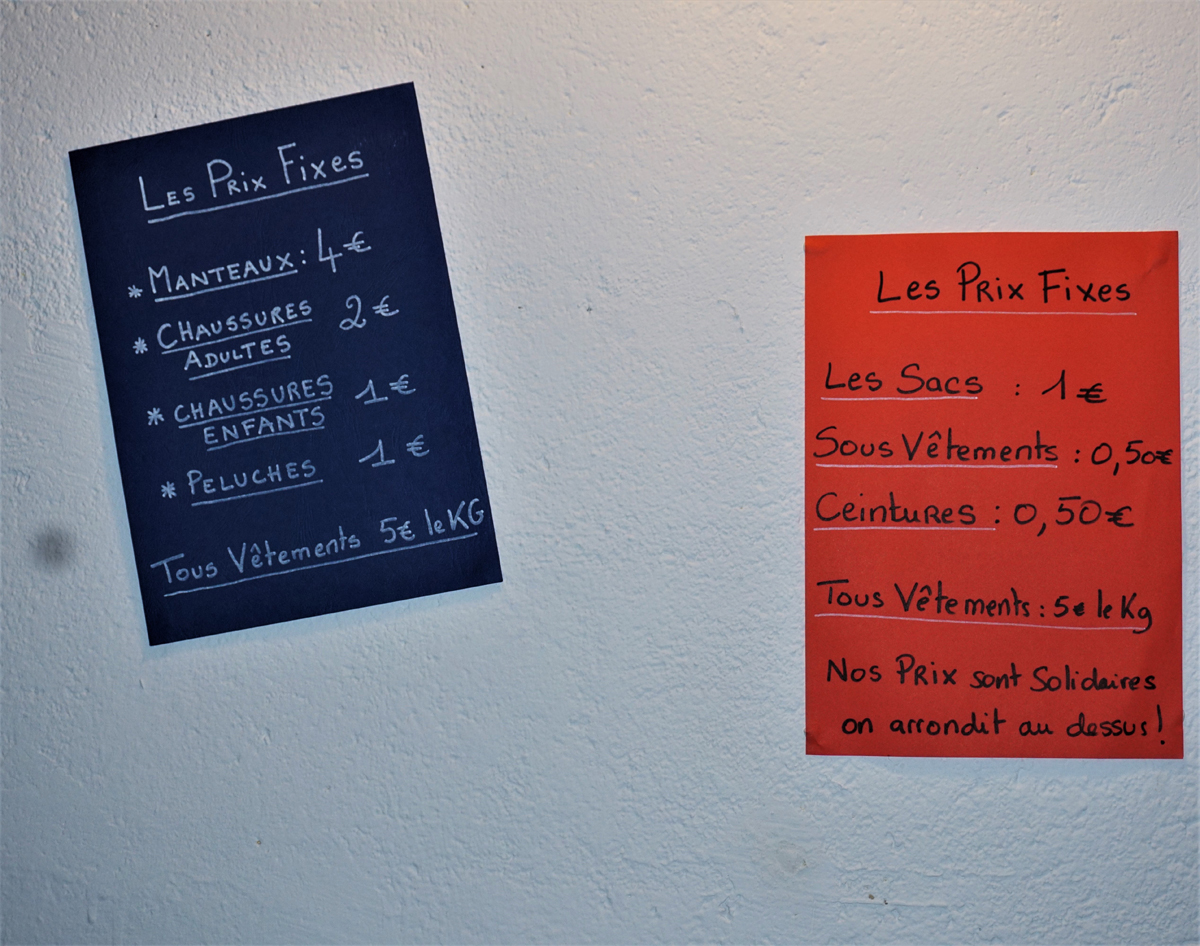 Les Prix Fixes
* Manteaux : 4€
* Chaussures 2€
Adultes
* Chaussures 1€
Enfants
* Peluches 1€
Tous Vêtements 5€ le KG
Les Prix Fixes
Les Sacs : 1€
Sous Vêtements : 0,50€
Ceintures : 0,50€
Tous Vêtements : 5€ le Kg
Nos Prix sont Solidaires
on arrondit au dessus !